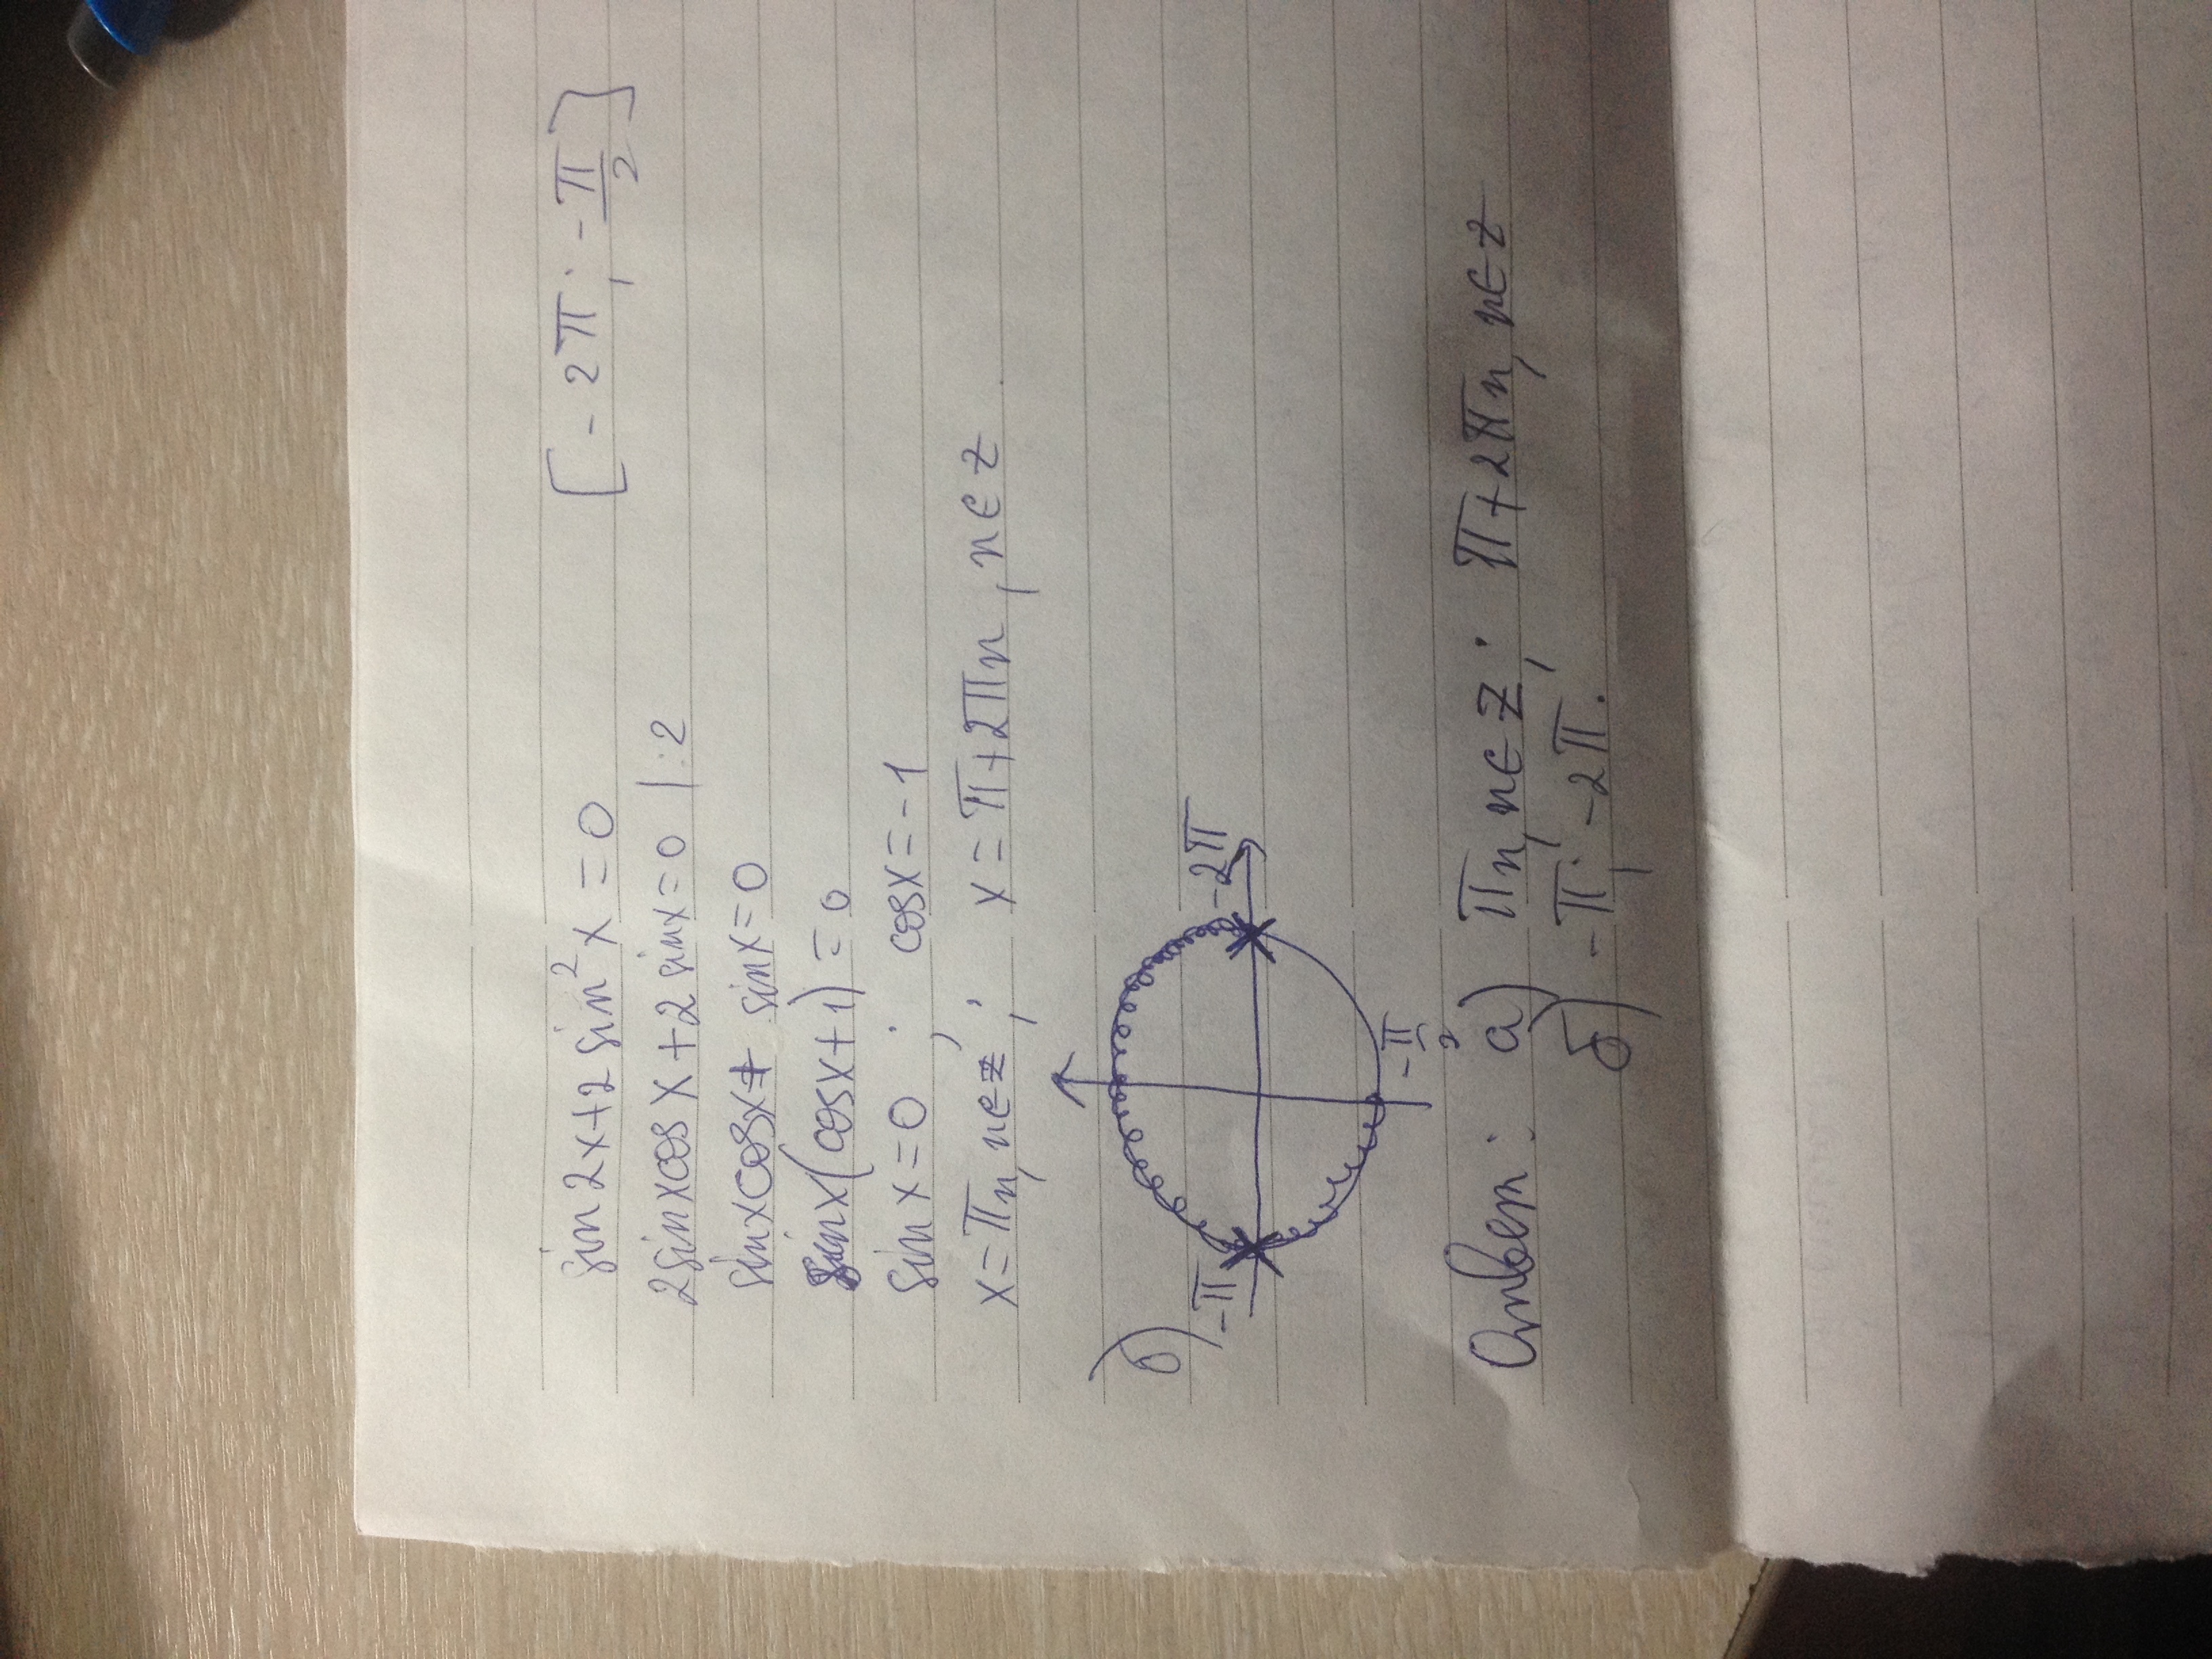 sin2x+2sin²x=0 [-2π; -π/2]
2sinxcosx+2sinx=0 |:2
sinxcosx+sinx=0
sinx(cosx+1)=0
sinx=0; cosx=-1
x=πn, n∈z; x=π+2πn, n∈z
б)
-π -2π
-π/2
Ответ: а) πn, n∈z; π+2πn, n∈z
б) -π; -2π.